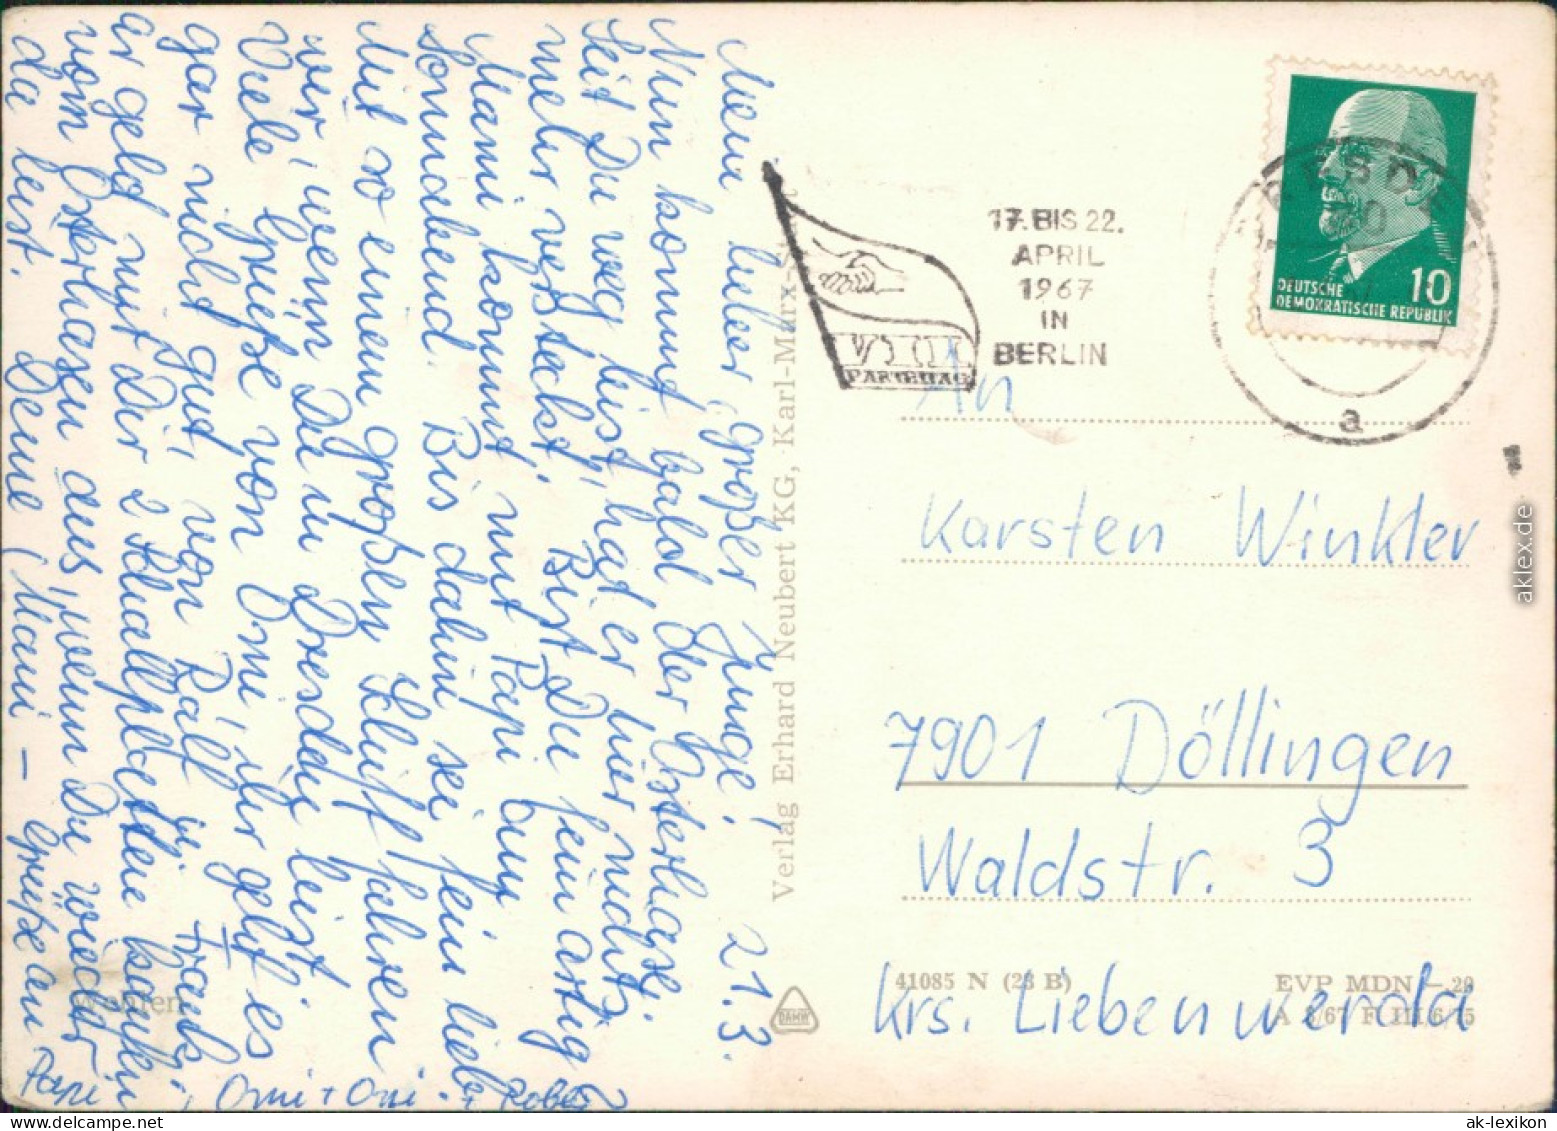 Mein lieber großer Junge! 21.3.
Nun kommt bald der Osterhase.
Seit Du weg bist, hat er hier nichts
mehr versteckt. Bist Du fein artig?
Mami kommt mit Papi am
Sonnabend. Bis dahin sei fein lieb.
Mit so einem großen Schiff fahren
wir, wenn Du in Dresden bist.
Viele Grüße von Omi, ihr geht es
gar nicht gut, von Ralf u. Frank,
er geld mit Dir 2 Schallplatten kaufen
vom Osterhasen aus, wenn Du wieder
da bist. Deine Mami – Grüße an
Papi, Omi + Opi
Verlag Erhard Neubert KG, Karl-Marx-St
Wehlen
17. BIS 22.
APRIL
1967
IN
BERLIN
VII
PARTEITAG
DRESDEN
a
10
DEUTSCHE
DEMOKRATISCHE REPUBLIK
An
Karsten Winkler
7901 Döllingen
Waldstr. 3
Krs. Liebenwerda
41085 N (23 B)
EVP MDN –.20
aklex.de
ak-lexikon